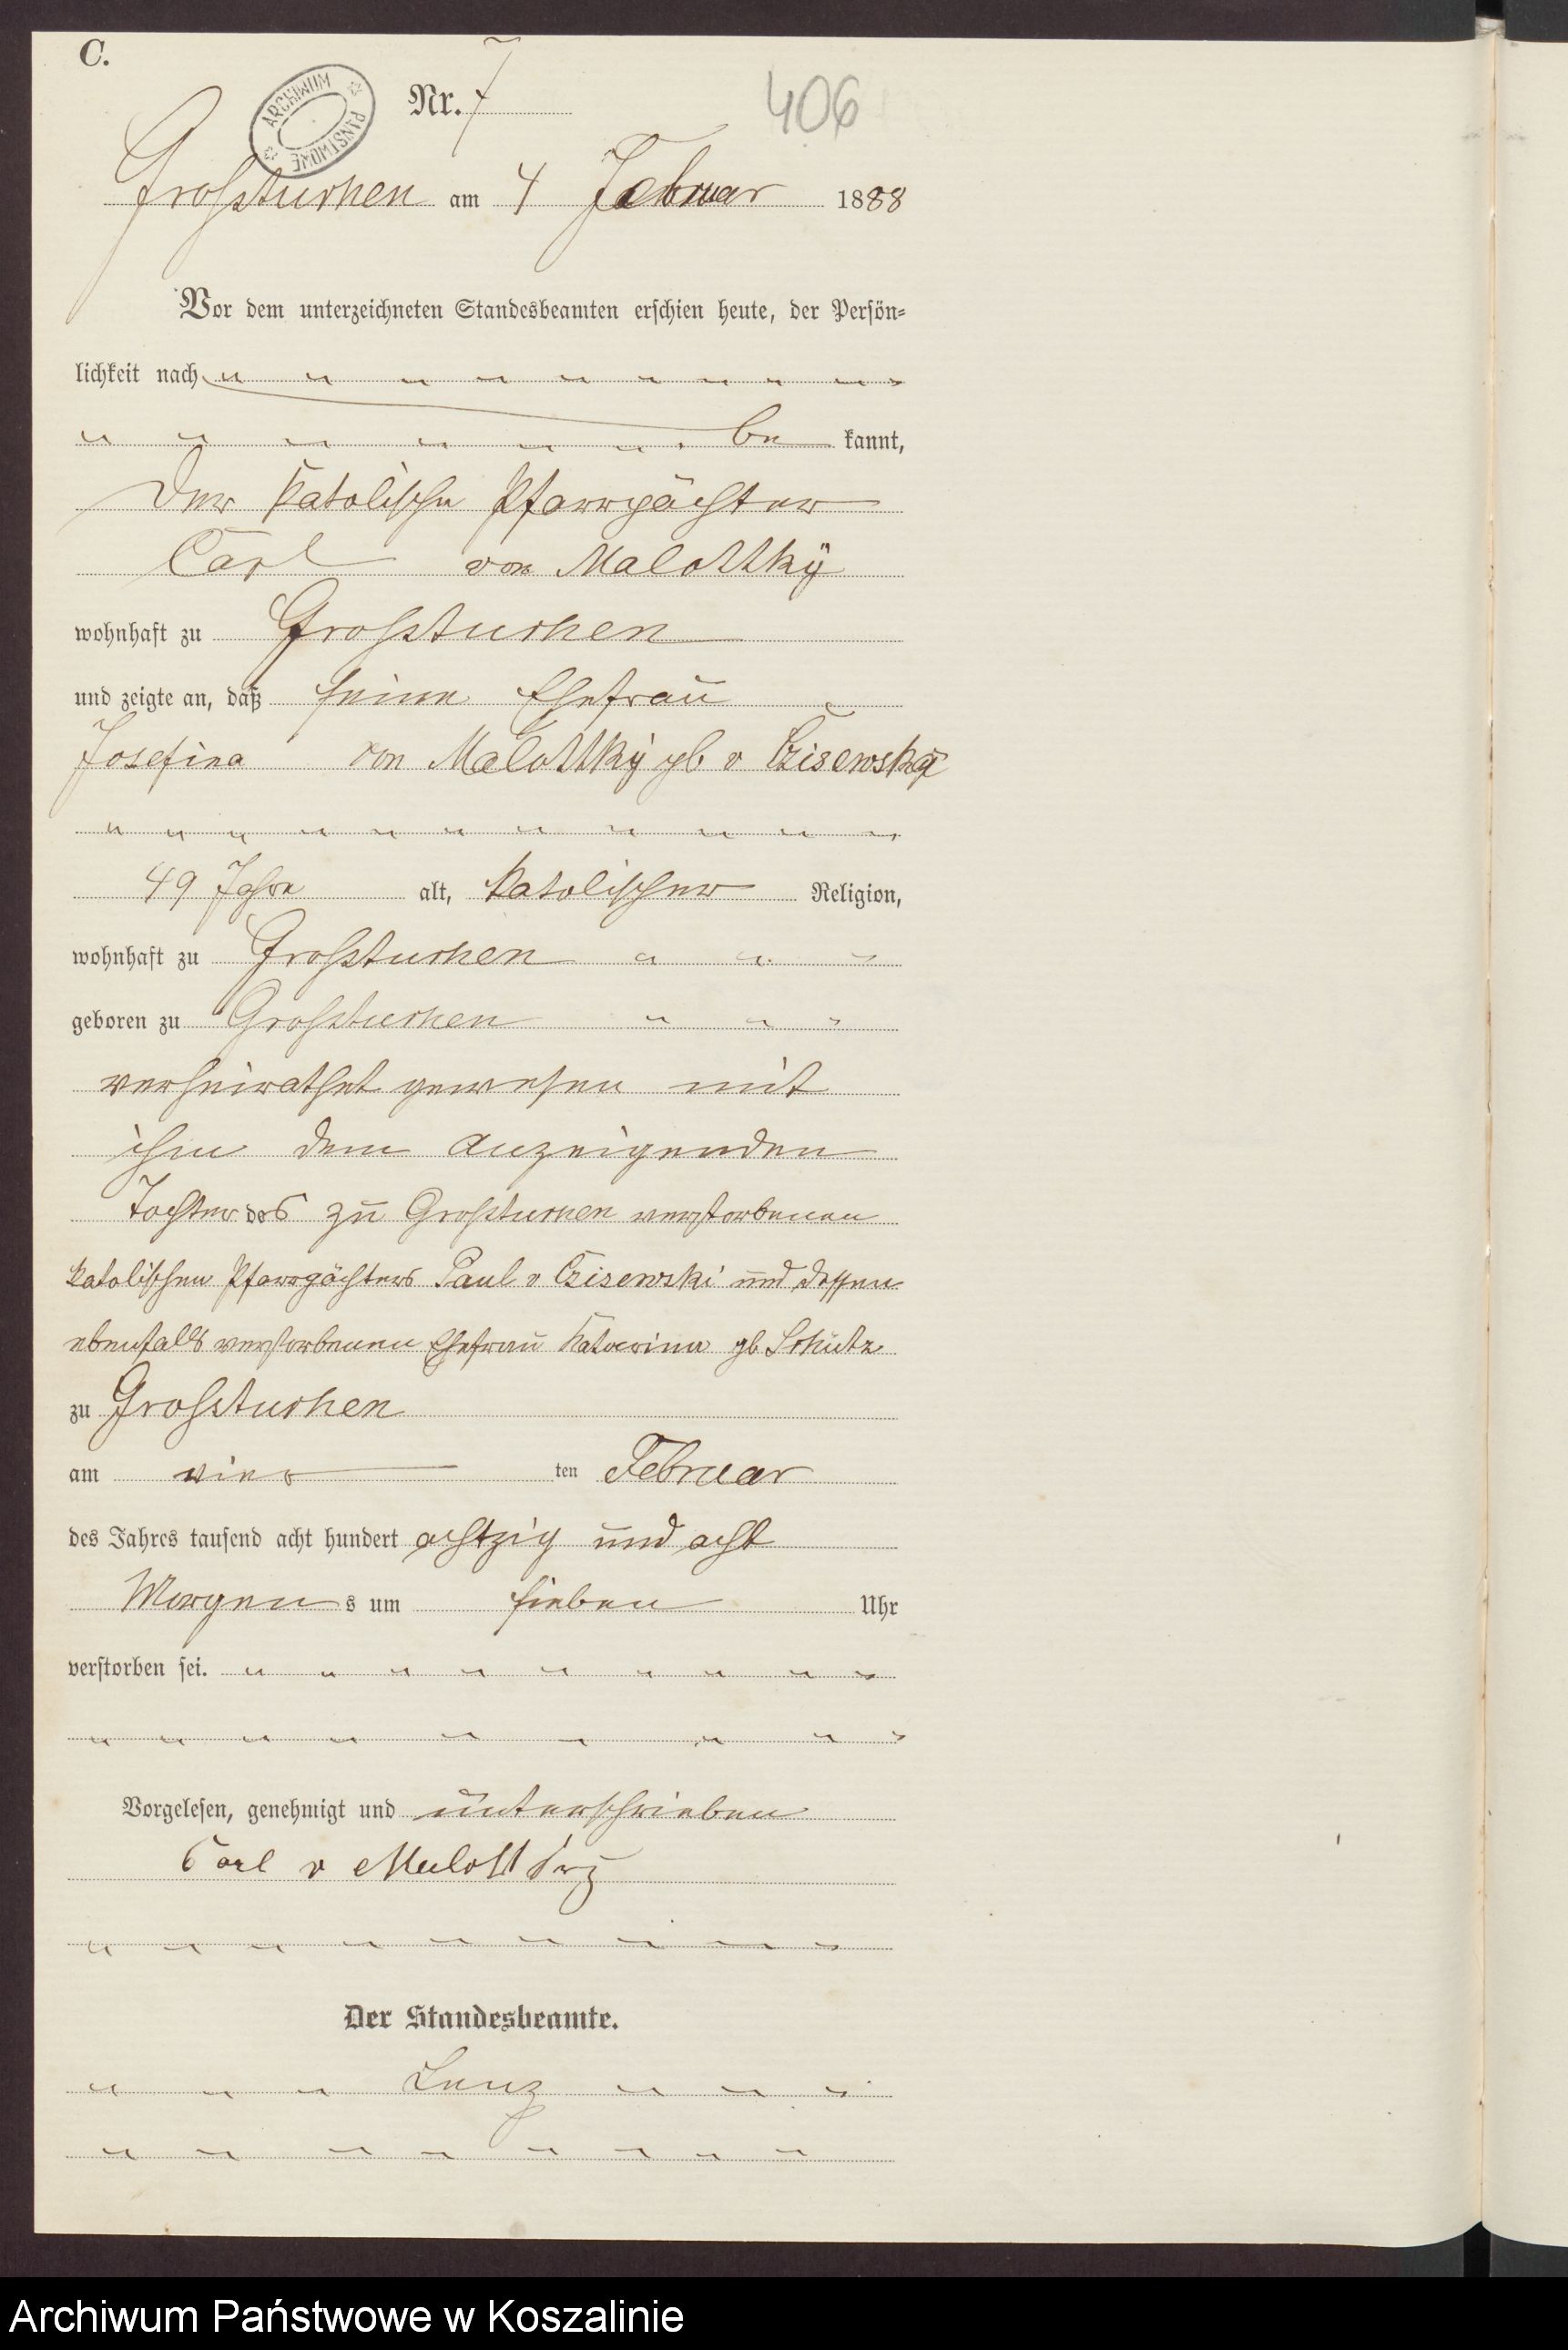 C.
ARCHIWUM PAŃSTWOWE
Nr. 7
406
Großtuchen am 4 Februar 1888
Vor dem unterzeichneten Standesbeamten erschien heute, der Persön-
lichkeit nach
be kannt,
der katolische Pfarrpächter
Carl von Malottky
wohnhaft zu Großtuchen
und zeigte an, daß seine Ehefrau
Josefina von Malottky gb v Czisewska
49 Jahre alt, katolischer Religion,
wohnhaft zu Großtuchen
geboren zu Großtuchen
verheirathet gewesen mit
ihm dem Anzeigenden
Tochter des zu Großtuchen verstorbenen
katolischen Pfarrpächters Paul v Czisewski und dessen
ebenfalls verstorbenen Ehefrau Katarina gb Schütz
zu Großtuchen
am vier ten Februar
des Jahres tausend acht hundert achtzig und acht
Morgen s um sieben Uhr
verstorben sei.
Vorgelesen, genehmigt und unterschrieben
Carl v Malottky
Der Standesbeamte.
Lenz
Archiwum Państwowe w Koszalinie